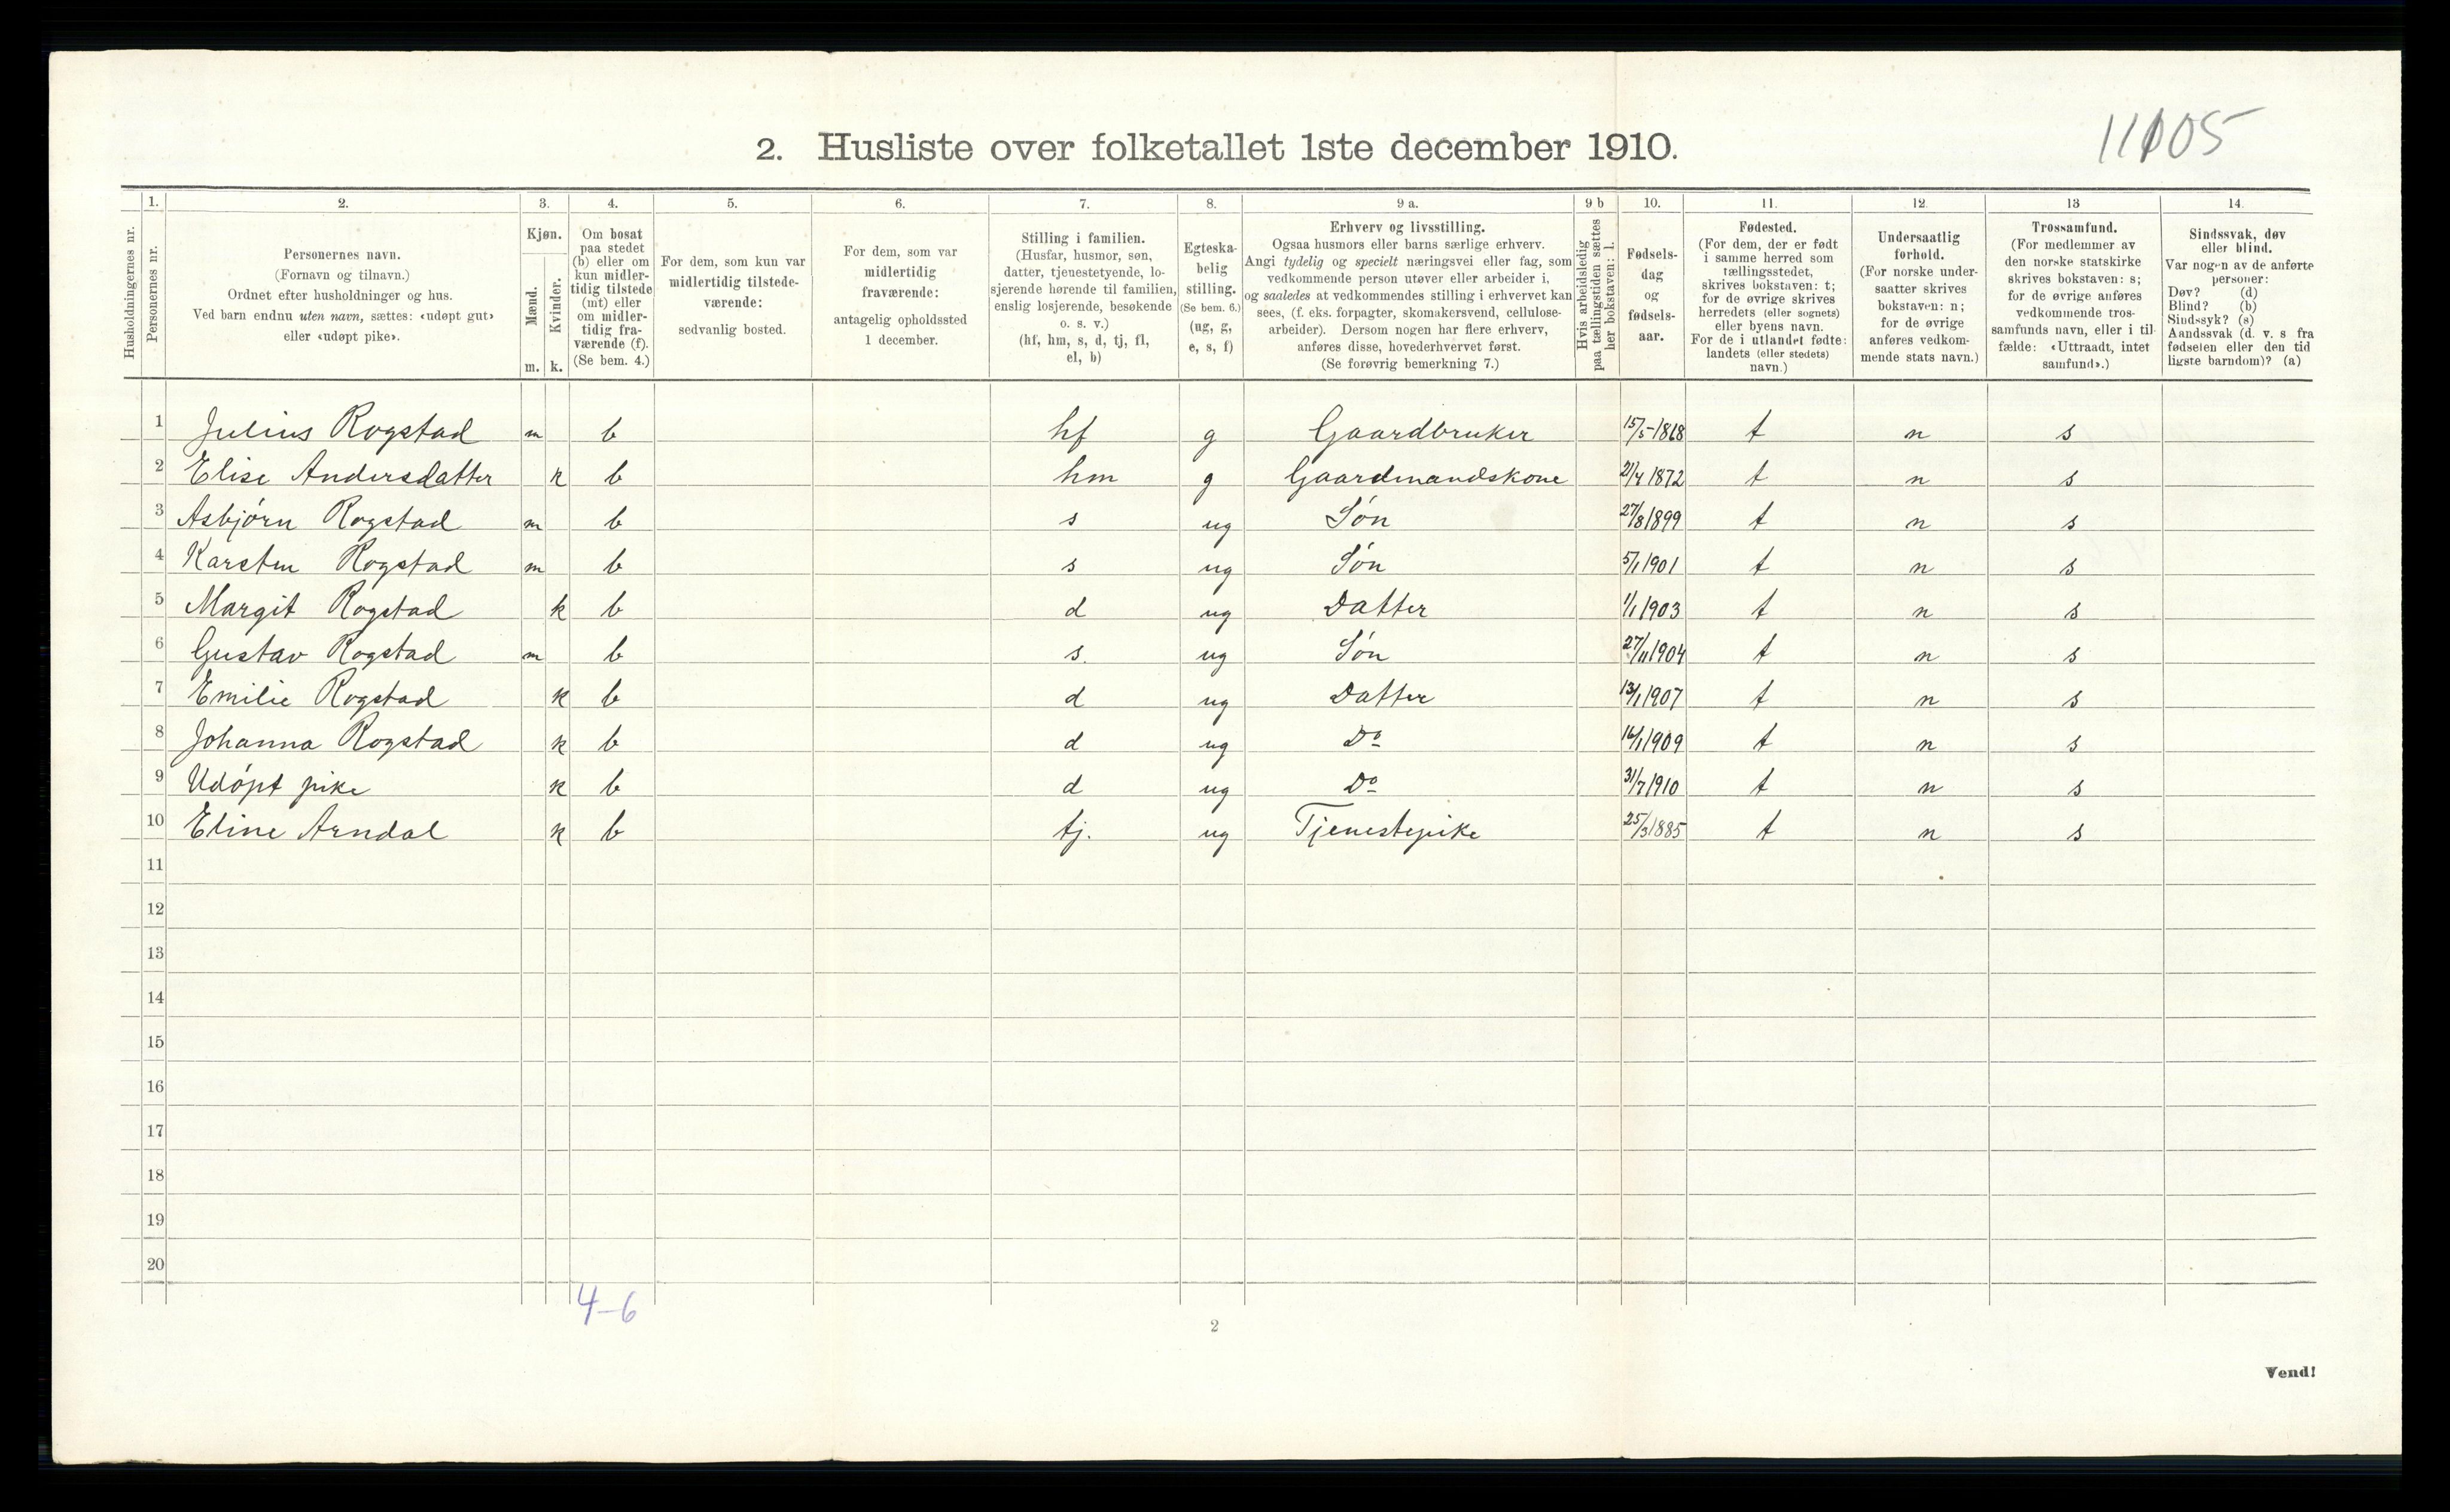 11105
2. Husliste over folketallet 1ste december 1910.
Husholdningernes nr.
1.
Personernes nr.
2.
Personernes navn.
(Fornavn og tilnavn.)
Ordnet efter husholdninger og hus.
Ved barn endnu uten navn, sættes: «udøpt gut»
eller «udøpt pike».
3.
Kjøn.
Mænd.
Kvinder.
m. k.
4.
Om bosat
paa stedet
(b) eller om
kun midler-
tidig tilstede
(mt) eller
om midler-
tidig fra-
værende (f).
(Se bem. 4.)
5.
For dem, som kun var
midlertidig tilstede-
værende:
sedvanlig bosted.
6.
For dem, som var
midlertidig
fraværende:
antagelig opholdssted
1 december.
7.
Stilling i familien.
(Husfar, husmor, søn,
datter, tjenestetyende, lo-
sjerende hørende til familien,
enslig losjerende, besøkende
o. s. v.)
(hf, hm, s, d, tj, fl,
el, b)
8.
Egteska-
belig
stilling.
(Se bem. 6.)
(ug, g,
e, s, f)
9 a.
Erhverv og livsstilling.
Ogsaa husmors eller barns særlige erhverv.
Angi tydelig og specielt næringsvei eller fag, som
vedkommende person utøver eller arbeider i,
og saaledes at vedkommendes stilling i erhvervet kan
sees, (f. eks. forpagter, skomakersvend, cellulose-
arbeider). Dersom nogen har flere erhverv,
anføres disse, hovederhvervet først.
(Se forøvrig bemerkning 7.)
9 b
Hvis arbeidsledig
paa tællingstiden sættes
her bokstaven: l.
10.
Fødsels-
dag
og
fødsels-
aar.
11.
Fødested.
(For dem, der er født
i samme herred som
tællingsstedet,
skrives bokstaven: t;
for de øvrige skrives
herredets (eller sognets)
eller byens navn.
For de i utlandet fødte:
landets (eller stedets)
navn.)
12.
Undersaatlig
forhold.
(For norske under-
saatter skrives
bokstaven: n;
for de øvrige
anføres vedkom-
mende stats navn.)
13
Trossamfund.
(For medlemmer av
den norske statskirke
skrives bokstaven: s;
for de øvrige anføres
vedkommende tros-
samfunds navn, eller i til-
fælde: «Uttraadt, intet
samfund».)
14.
Sindssvak, døv
eller blind.
Var nogen av de anførte
personer:
Døv? (d)
Blind? (b)
Sindssyk? (s)
Aandssvak (d. v. s fra
fødselen eller den tid
ligste barndom)? (a)
1 Julius Rogstad m b hf g Gaardbruker 15/5-1868 t n s
2 Elise Andersdatter k b hm g Gaardmandskone 21/4 1872 t n s
3 Asbjørn Rogstad m b s ug Søn 27/8 1899 t n s
4 Karsten Rogstad m b s ug Søn 5/1 1901 t n s
5 Margit Rogstad k b d ug Datter 1/1 1903 t n s
6 Gustav Rogstad m b s. ug Søn 27/11 1904 t n s
7 Emilie Rogstad k b d ug Datter 13/1 1907 t n s
8 Johanna Rogstad k b d ug Do 16/1 1909 t n s
9 Udøpt pike k b d ug Do 31/7 1910 t n s
10 Eline Arndal k b tj. ug Tjenestepike 25/3 1885 t n s
11
12
13
14
15
16
17
18
19
20
4-6
2
Vend!